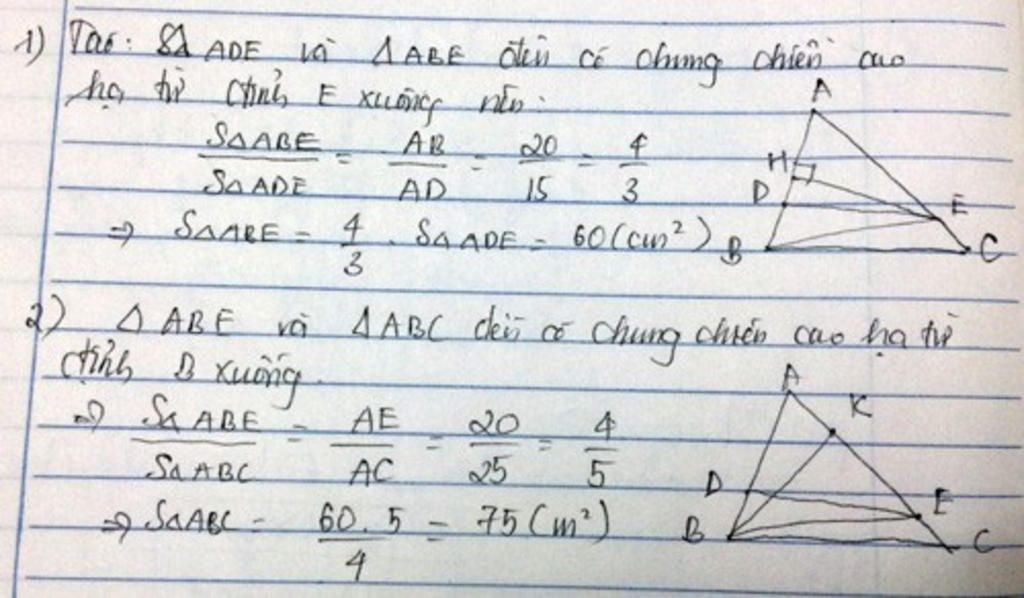 1) Ta có: SΔ ADE và ΔABE đều có chung chiều cao
hạ từ đỉnh E xuống nên:
SΔABE / SΔADE = AB / AD = 20 / 15 = 4 / 3
⇒ SΔABE = 4 / 3 . SΔADE = 60 (cm²)
A
H
D
E
B
C
2) Δ ABE và ΔABC đều có chung chiều cao hạ từ
đỉnh B xuống.
⇒ SΔ ABE / SΔABC = AE / AC = 20 / 25 = 4 / 5
⇒ SΔABC = 60 . 5 / 4 = 75 (m²)
A
K
D
E
B
C